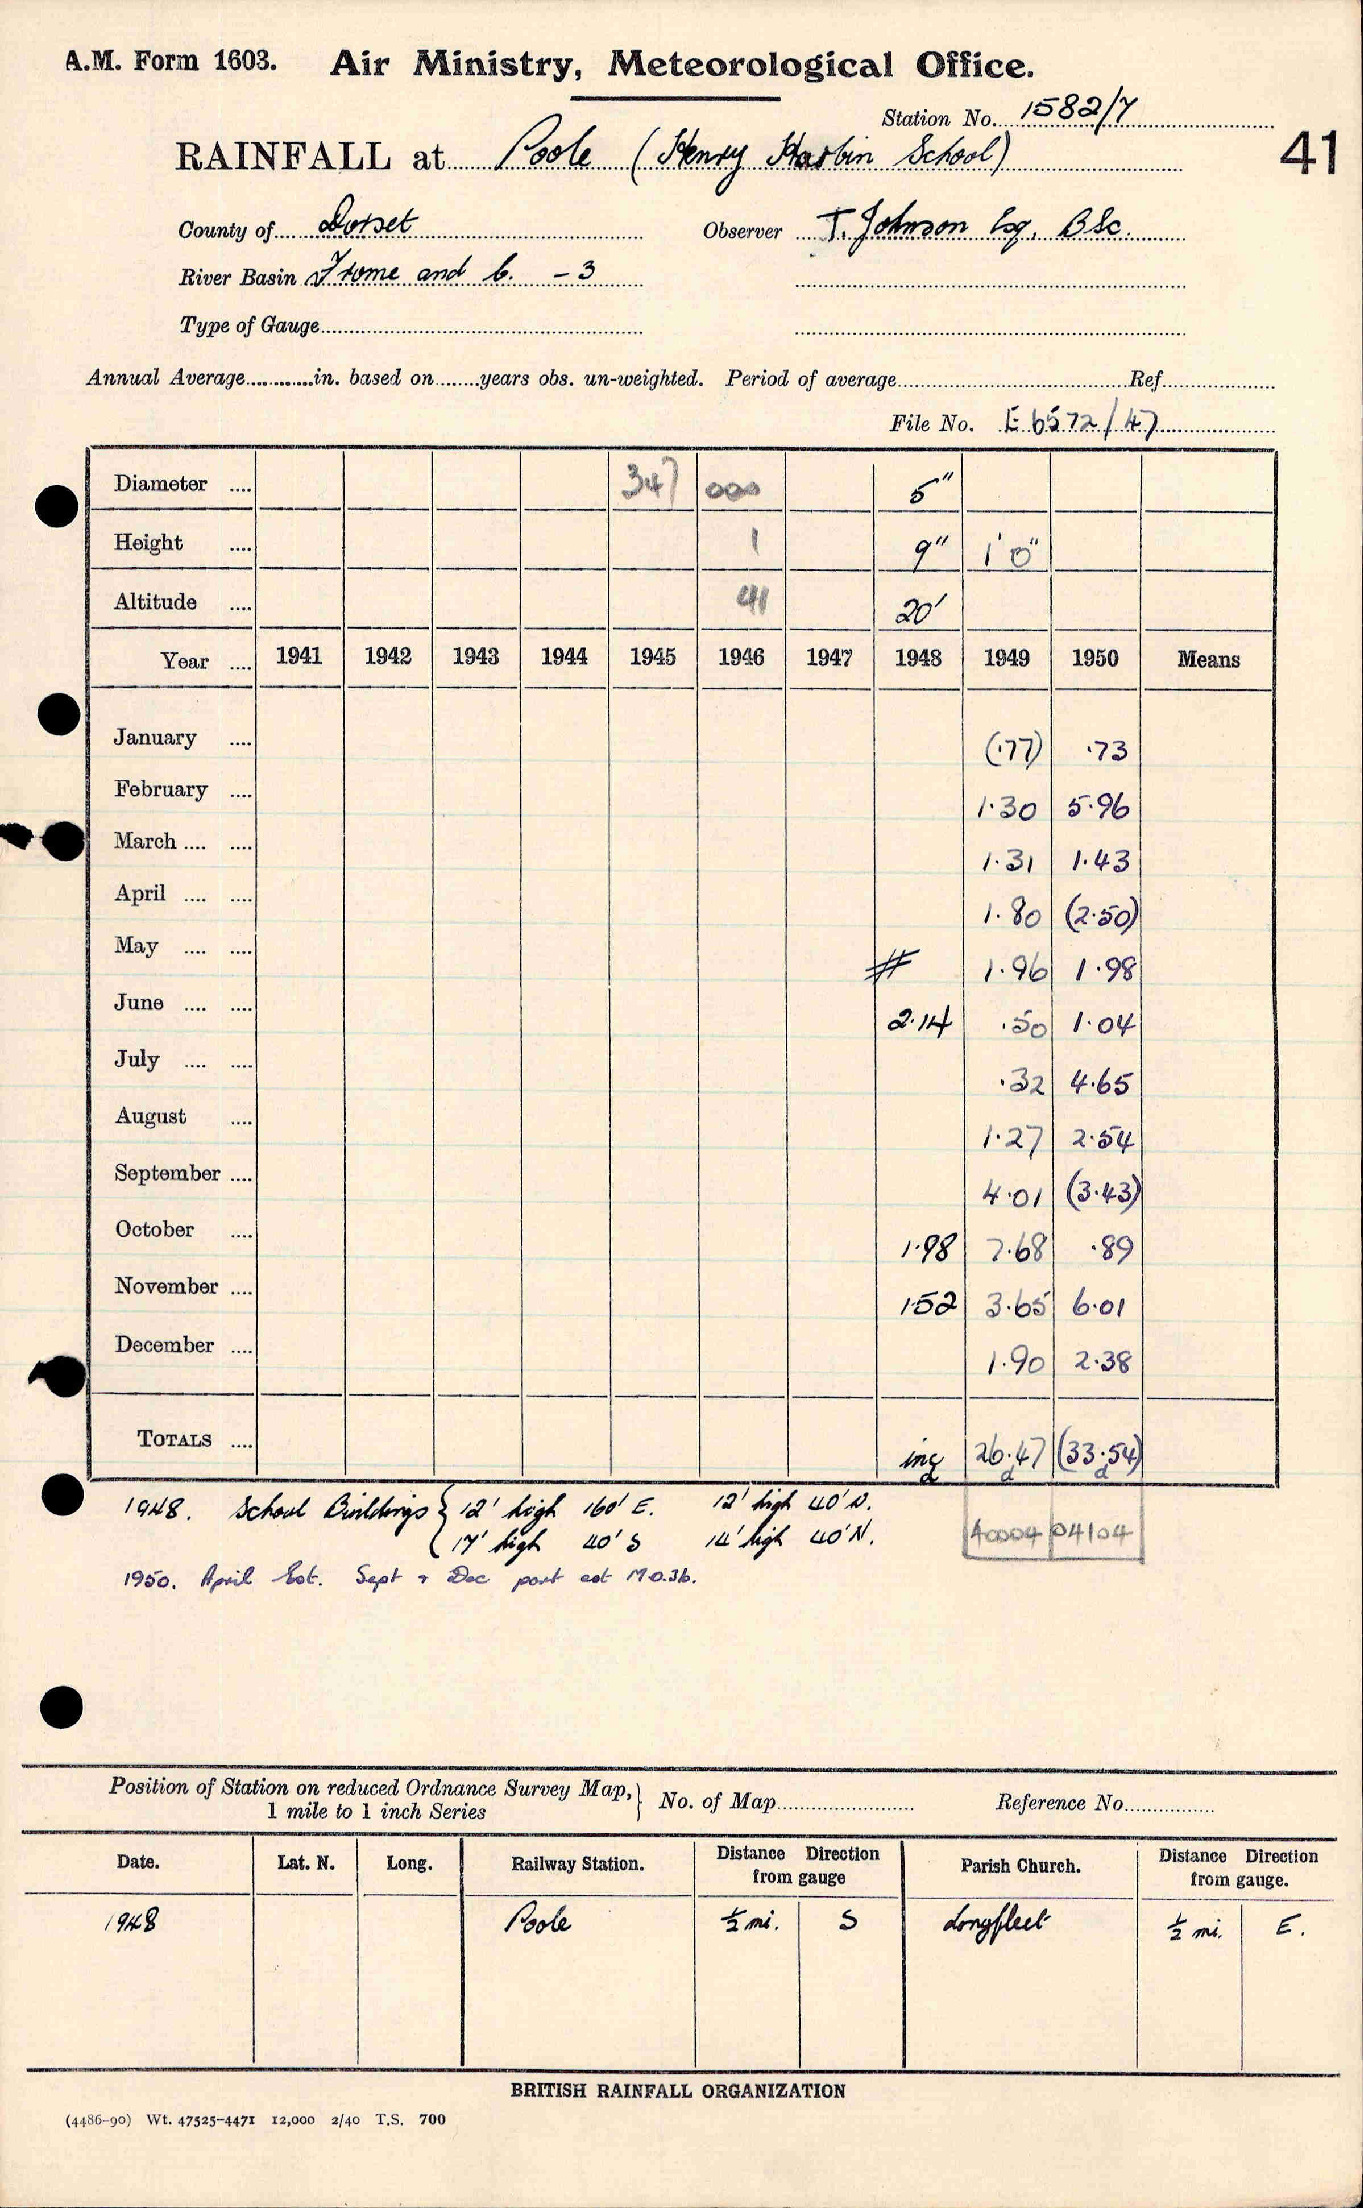 A.M. Form 1603. Air Ministry, Meteorological Office.
Station No. 1582/7
RAINFALL at Poole (Henry Harbin School)
41
County of Dorset Observer T. Johnson Esq. BSc.
River Basin Frome and C. - 3
Type of Gauge
Annual Average............in. based on........years obs. un-weighted. Period of average Ref.
File No. E 6572/47
Diameter .... 347 000 5"
Height .... 1 9" 1' 0"
Altitude .... 41 20'
Year .... 1941 1942 1943 1944 1945 1946 1947 1948 1949 1950 Means
January .... (·77) ·73
February .... 1·30 5·96
March .... .... 1·31 1·43
April .... .... 1·80 (2·50)
May .... .... # 1·96 1·98
June .... .... 2·14 ·50 1·04
July .... .... ·32 4·65
August .... 1·27 2·54
September .... 4·01 (3·43)
October .... 1·98 7·68 ·89
November .... 1·52 3·65 6·01
December .... 1·90 2·38
TOTALS .... inc 26·47 (33·54)
d d d
1948. School Buildings { 12' high 160' E. 12' high 40' N.
17' high 40' S 14' high 40' N.
40004 04104
1950. April Est. Sept & Dec part est M.O.3b.
Position of Station on reduced Ordnance Survey Map, } No. of Map Reference No.
1 mile to 1 inch Series
Date. Lat. N. Long. Railway Station. Distance Direction from gauge Parish Church. Distance Direction from gauge.
1948 Poole ½ mi. S Longfleet ½ mi. E.
BRITISH RAINFALL ORGANIZATION
(4486-90) Wt. 47525-4471 12,000 2/40 T.S. 700